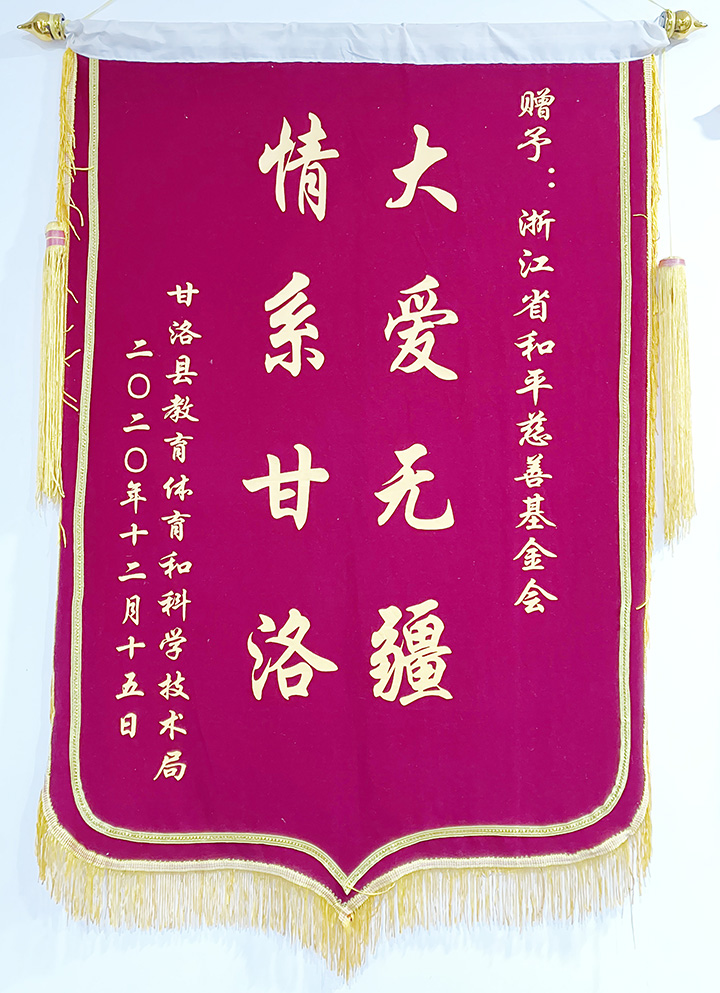 赠予：浙江省和平慈善基金会
大爱无疆
情系甘洛
甘洛县教育体育和科学技术局
二〇二〇年十二月十五日